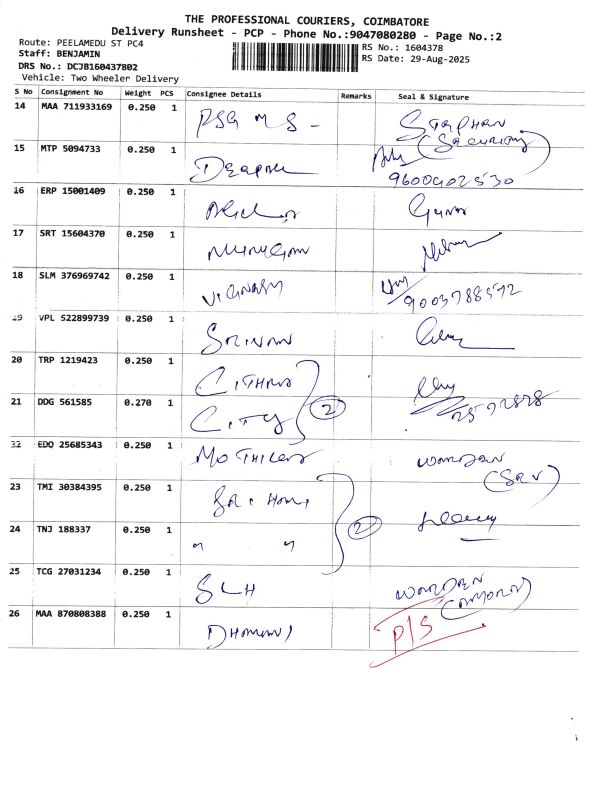 THE PROFESSIONAL COURIERS, COIMBATORE
Delivery Runsheet - PCP - Phone No.:9047080280 - Page No.:2
Route: PEELAMEDU ST PC4
RS No.: 1604378
Staff: BENJAMIN
RS Date: 29-Aug-2025
DRS No.: DCJB160437802
Vehicle: Two Wheeler Delivery
S No Consignment No Weight PCS Consignee Details Remarks Seal & Signature
14 MAA 711933169 0.250 1 PSG M S - STEPHEN
(Security)
15 MTP 5094733 0.250 1
9600902530
16 ERP 15001409 0.250 1
17 SRT 15604370 0.250 1 MURUGAN
18 SLM 376969742 0.250 1 VIGNESH
9003788592
19 VPL 522899739 0.250 1
20 TRP 1219423 0.250 1
21 DDG 561585 0.270 1 CITY 2
22 EDQ 25685343 0.250 1 WARDEN
23 TMI 30384395 0.250 1
2
24 TNJ 188337 0.250 1 " "
25 TCG 27031234 0.250 1 SLH WARDEN
26 MAA 870808388 0.250 1 P/S